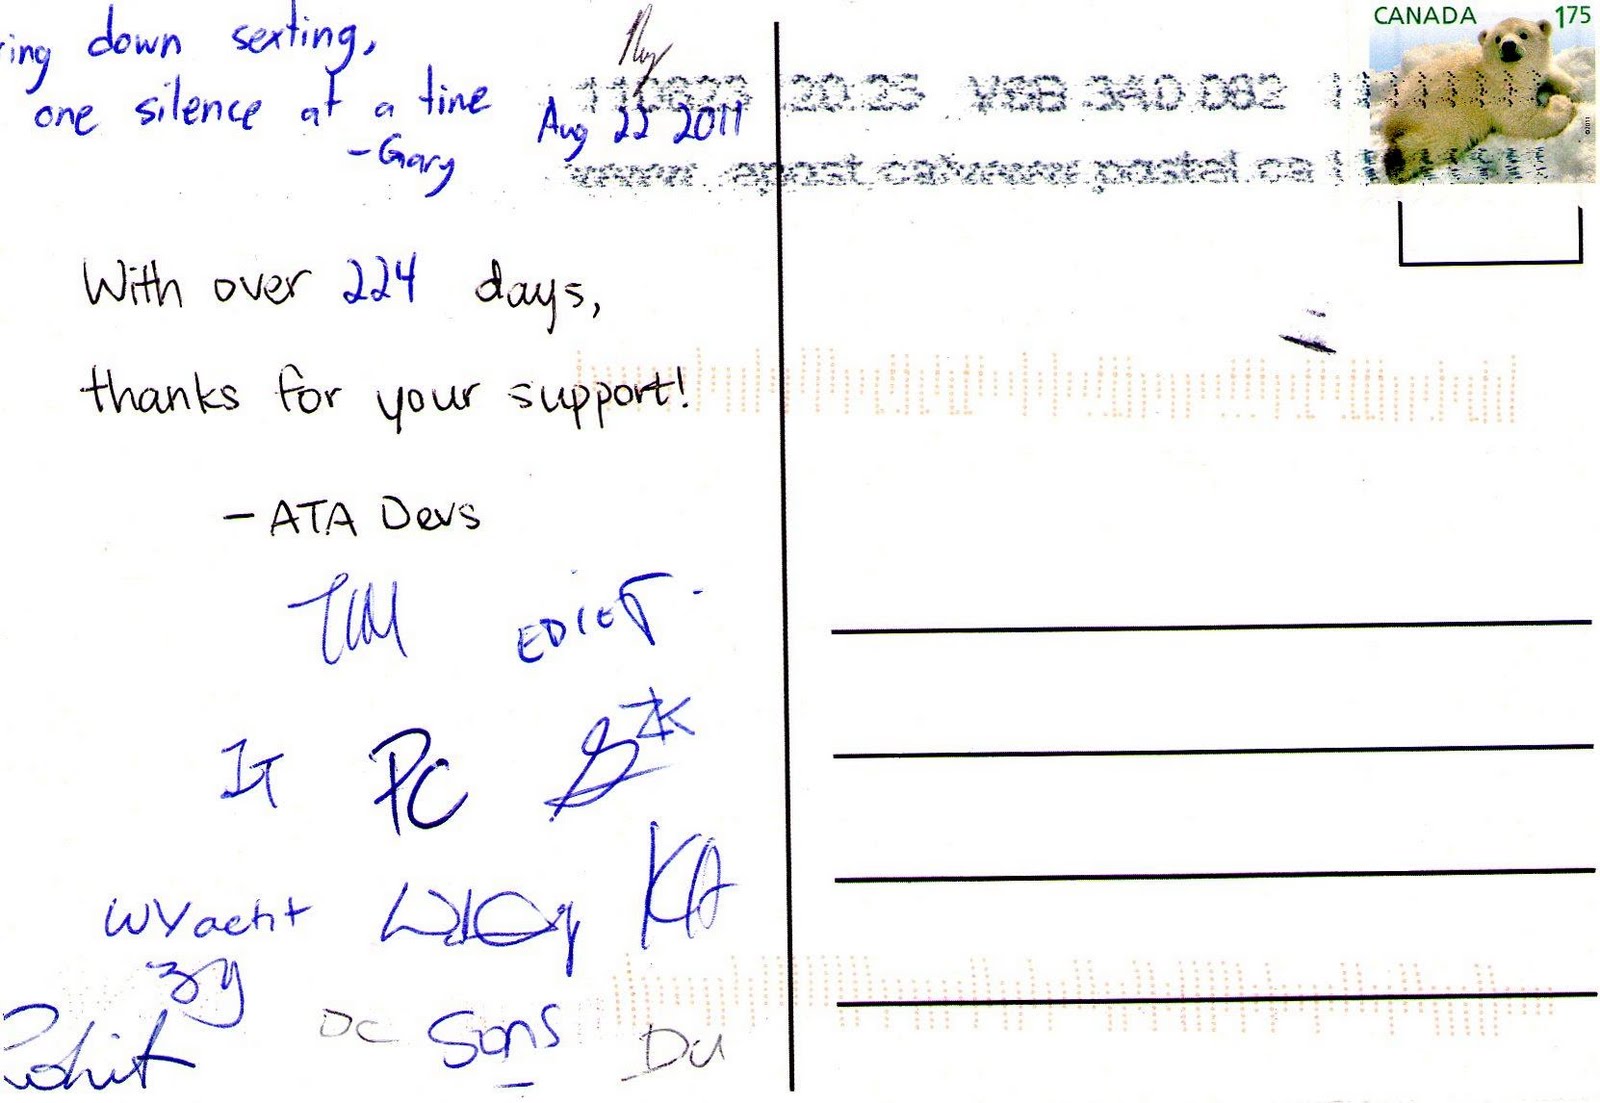 ing down sexting,
one silence at a time
-Gary
Aug 22 2011
110823 20:25 V6B 340 082
www.epost.ca/www.postel.ca
CANADA 175
©2011
With over 224 days,
thanks for your support!
- ATA Devs
TIM EDIET
IT PC ZK
WYacht Wiley KA
3y
Rohit DC Sons Du